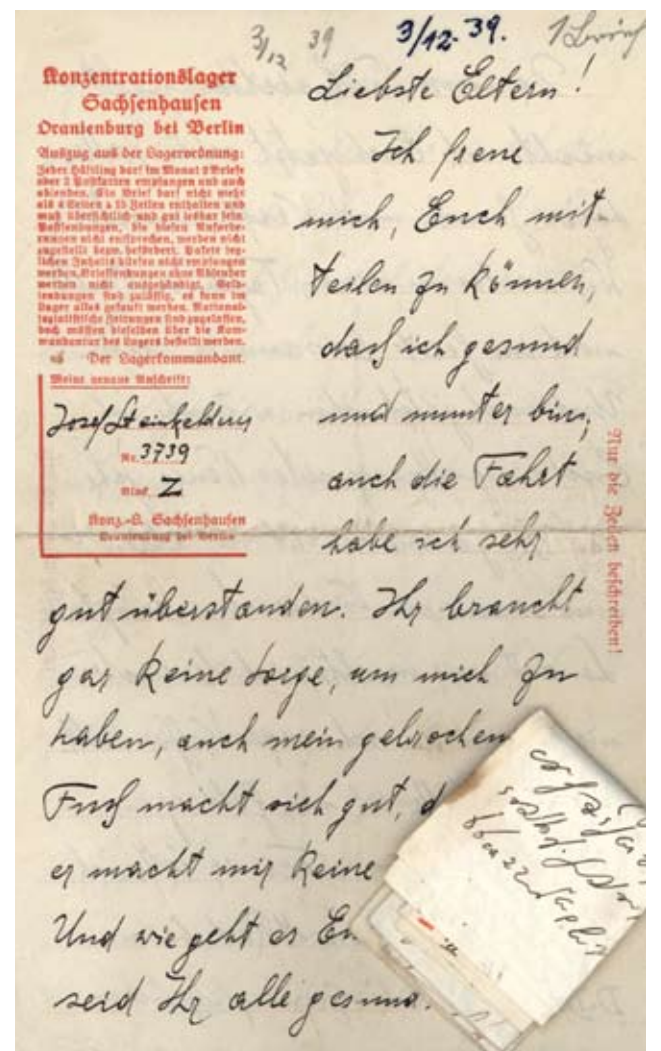 3/12 39
3/12. 39.
Konzentrationslager
Sachsenhausen
Oranienburg bei Berlin
Auszug aus der Lagerordnung:
Jeder Häftling darf im Monat 2 Briefe
oder 2 Postkarten empfangen und auch
absenden. Ein Brief darf nicht mehr
als 4 Seiten a 15 Zeilen enthalten und
muß übersichtlich und gut lesbar sein
Postsendungen, die diesen Anforde-
rungen nicht entsprechen, werden nicht
zugestellt bezw. befördert. Pakete jeg-
lichen Inhalts dürfen nicht empfangen
werden. Briefsendungen ohne Absender
werden nicht ausgehändigt. Geld-
sendungen sind zulässig, es kann im
Lager alles gekauft werden. National-
sozialistische Zeitungen sind zugelassen,
doch müssen dieselben über die Kom-
mandantur des Lagers bestellt werden.
Der Lagerkommandant.
Meine genaue Anschrift:
Josef
Nr. 3739
Block Z
Konz.-L. Sachsenhausen
Oranienburg bei Berlin
Liebste Eltern!
Ich freue
mich, Euch mit
teilen zu können,
daß ich gesund
und munter bin,
auch die Fahrt
habe ich sehr
gut überstanden. Ihr braucht
gar keine Sorge, um mich zu
haben, auch mein gebrochen
Fuß macht sich gut, d
er macht mir keine
Und wie geht es Eu
seid Ihr alle gesund.
Nur die Zeilen beschreiben!